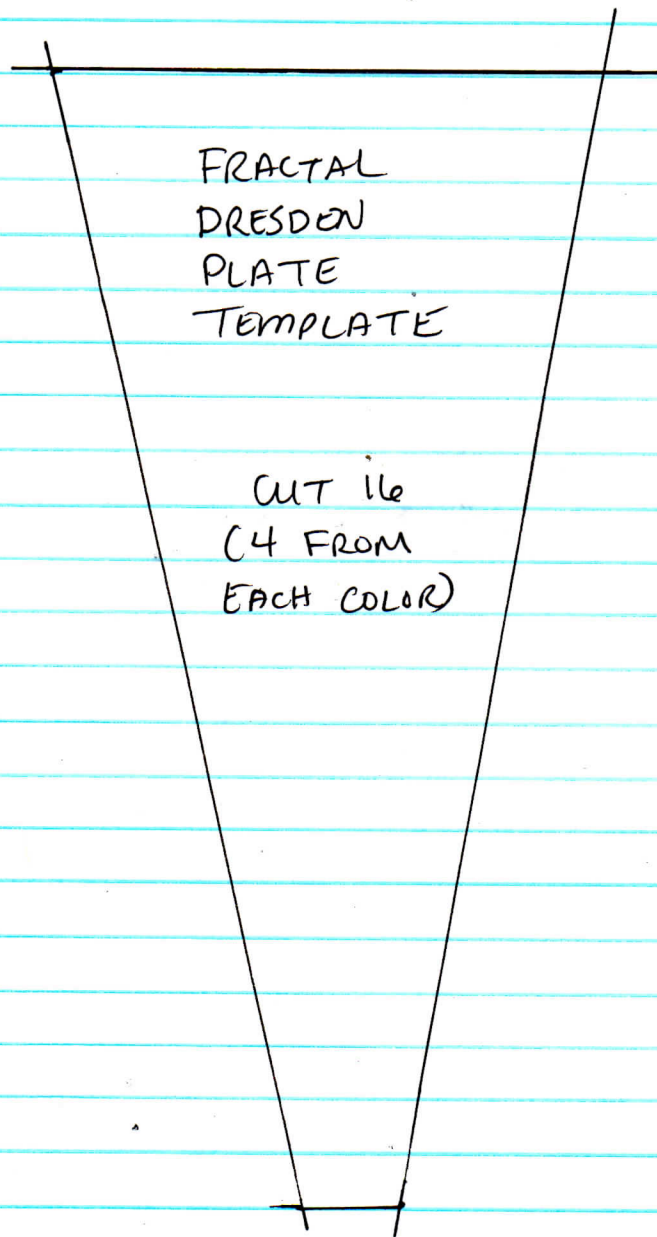 FRACTAL
DRESDEN
PLATE
TEMPLATE
CUT 16
(4 FROM
EACH COLOR)